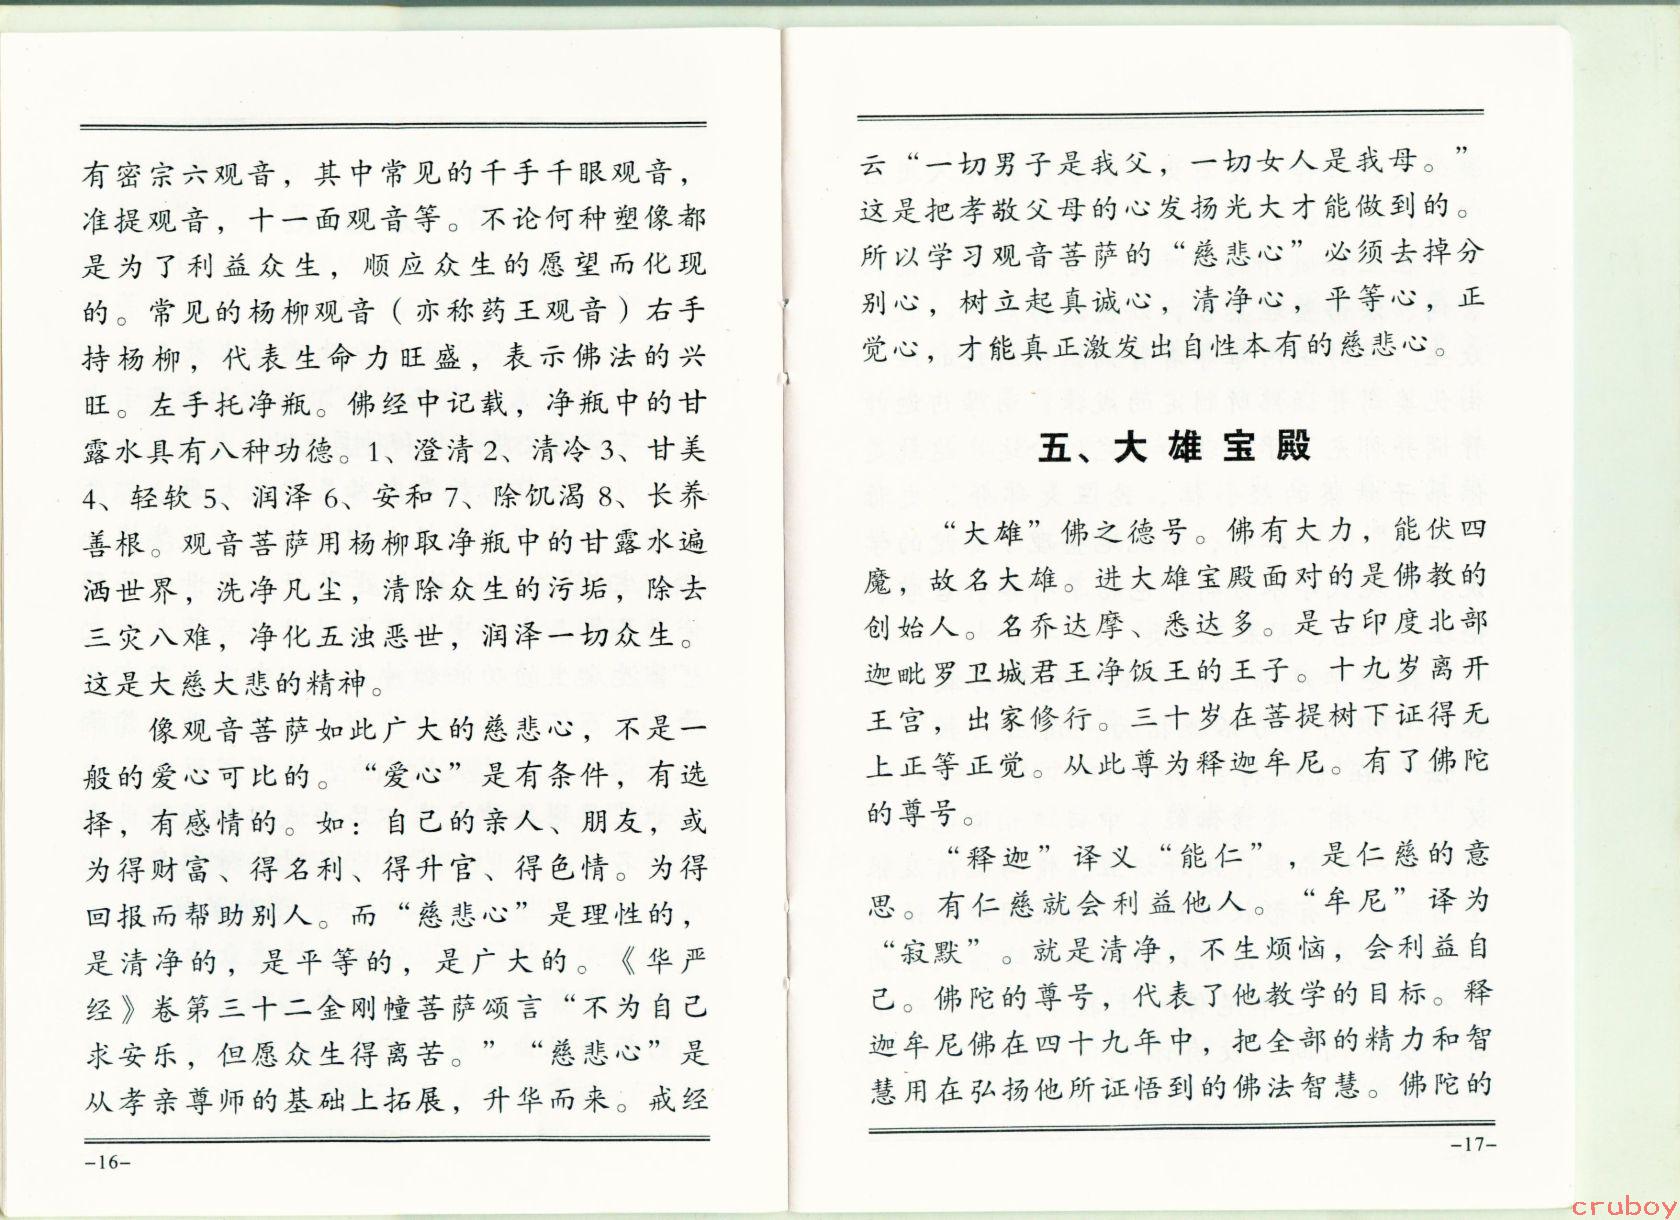 有密宗六观音，其中常见的千手千眼观音，
准提观音，十一面观音等。不论何种塑像都
是为了利益众生，顺应众生的愿望而化现
的。常见的杨柳观音（亦称药王观音）右手
持杨柳，代表生命力旺盛，表示佛法的兴
旺。左手托净瓶。佛经中记载，净瓶中的甘
露水具有八种功德。1、澄清2、清冷3、甘美
4、轻软5、润泽6、安和7、除饥渴8、长养
善根。观音菩萨用杨柳取净瓶中的甘露水遍
洒世界，洗净凡尘，清除众生的污垢，除去
三灾八难，净化五浊恶世，润泽一切众生。
这是大慈大悲的精神。
像观音菩萨如此广大的慈悲心，不是一
般的爱心可比的。“爱心”是有条件，有选
择，有感情的。如：自己的亲人、朋友，或
为得财富、得名利、得升官、得色情。为得
回报而帮助别人。而“慈悲心”是理性的，
是清净的，是平等的，是广大的。《华严
经》卷第三十二金刚幢菩萨颂言“不为自己
求安乐，但愿众生得离苦。”“慈悲心”是
从孝亲尊师的基础上拓展，升华而来。戒经
-16-
云“一切男子是我父，一切女人是我母。”
这是把孝敬父母的心发扬光大才能做到的。
所以学习观音菩萨的“慈悲心”必须去掉分
别心，树立起真诚心，清净心，平等心，正
觉心，才能真正激发出自性本有的慈悲心。
五、大雄宝殿
“大雄”佛之德号。佛有大力，能伏四
魔，故名大雄。进大雄宝殿面对的是佛教的
创始人。名乔达摩、悉达多。是古印度北部
迦毗罗卫城君王净饭王的王子。十九岁离开
王宫，出家修行。三十岁在菩提树下证得无
上正等正觉。从此尊为释迦牟尼。有了佛陀
的尊号。
“释迦”译义“能仁”，是仁慈的意
思。有仁慈就会利益他人。“牟尼”译为
“寂默”。就是清净，不生烦恼，会利益自
己。佛陀的尊号，代表了他教学的目标。释
迦牟尼佛在四十九年中，把全部的精力和智
慧用在弘扬他所证悟到的佛法智慧。佛陀的
-17-
cruboy